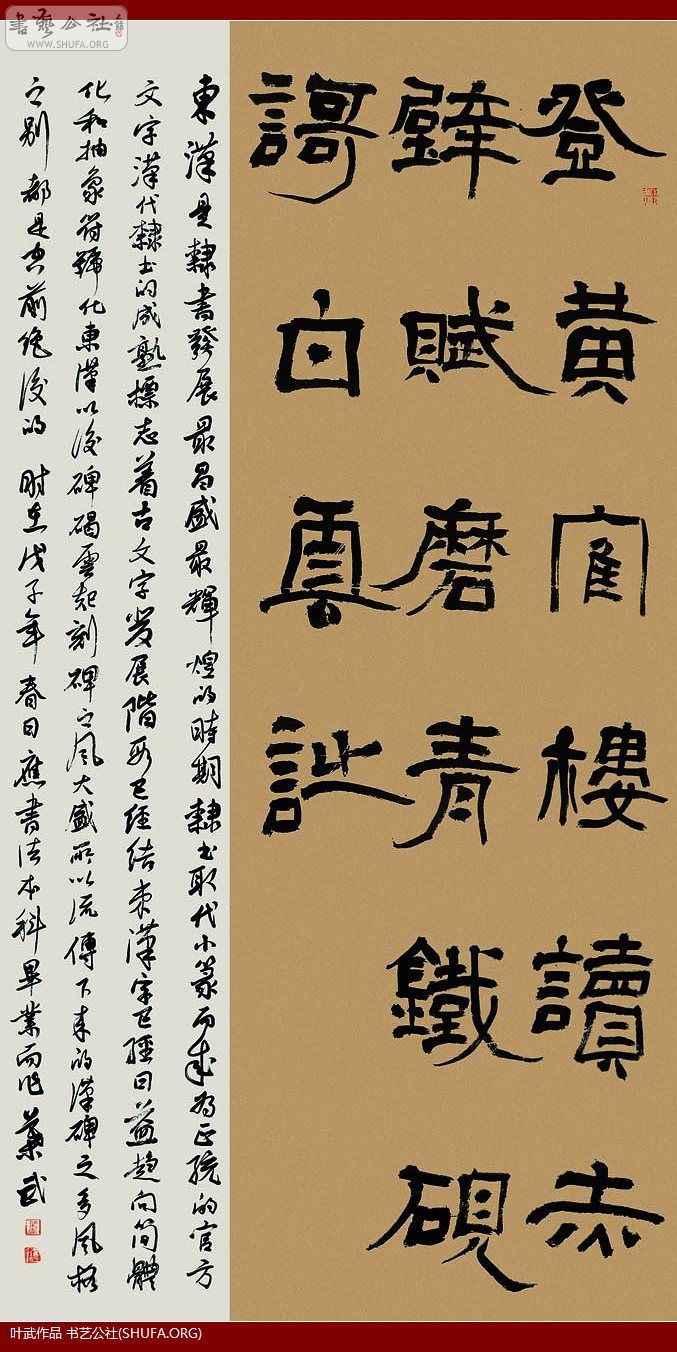 書藝公社
WWW.SHUFA.ORG
登黄寉樓讀赤
壁賦磨青鐵硯
謌白雲
東漢是隸書發展最昌盛最輝煌的時期隸書取代小篆而成為正統的官方
文字漢代隸書的成熟標志着古文字發展階段已經結束漢字已經日益趋向简體
化和抽象符號化東漢以後碑碣雲起刻碑之風大盛所以流傳下来的漢碑之多風格
之别都是空前绝後的 時在戊子年春日應書法本科畢業而作 葉武
叶武作品 书艺公社(SHUFA.ORG)